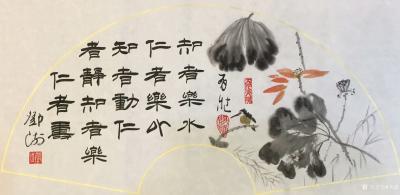 知者樂水
仁者樂山
知者動仁
者靜知者樂
仁者壽